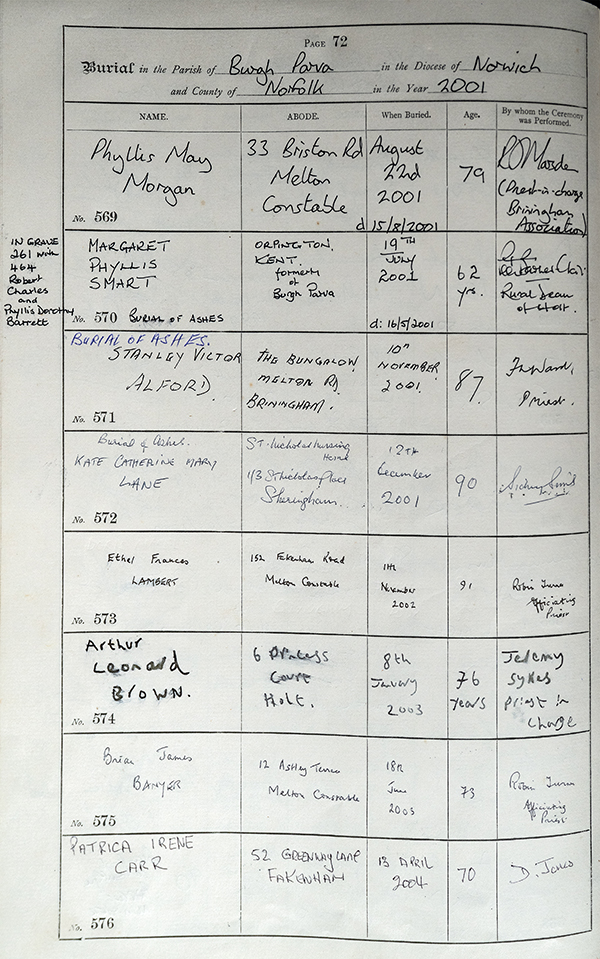 PAGE 72
Burial in the Parish of Burgh Parva in the Diocese of Norwich
and County of Norfolk in the Year 2001
NAME. ABODE. When Buried. Age. By whom the Ceremony
was Performed.
Phyllis May
Morgan
No. 569
33 Briston Rd
Melton
Constable
August
22nd
2001
d 15/8/2001
79
(Priest-in-charge
Briningham
Association)
IN GRAVE
261 with
464
Robert
Charles
and
Phyllis Dorothy
Barrett
MARGARET
PHYLLIS
SMART
No. 570 BURIAL OF ASHES
ORPINGTON,
KENT.
formerly
of
Burgh Parva
19TH
JULY
2001
d: 16/5/2001
62
yrs.
Rural Dean
of Holt.
BURIAL OF ASHES.
STANLEY VICTOR
ALFORD
No. 571
THE BUNGALOW
MELTON RD
BRININGHAM.
10th
NOVEMBER
2001.
87
Priest.
Burial of Ashes.
KATE CATHERINE MARY
LANE
No. 572
St. Nicholas Nursing
Home
1/3 St Nicholas Place
Sheringham.
12th
December
2001
90
Ethel Frances
LAMBERT
No. 573
152 Fakenham Road
Melton Constable
11th
November
2002
91
Robin
Officiating
Priest
Arthur
Leonard
Brown.
No. 574
6 Princess
Court
Holt.
8th
January
2003
76
years
Jeremy
Sykes
priest in
charge
Brian James
BANYER
No. 575
12 Astley Terrace
Melton Constable
18th
June
2003
73
Robin
Officiating
Priest
PATRICA IRENE
CARR
No. 576
52 GREENWAY LANE
FAKENHAM
13 APRIL
2004
70
D. Jones